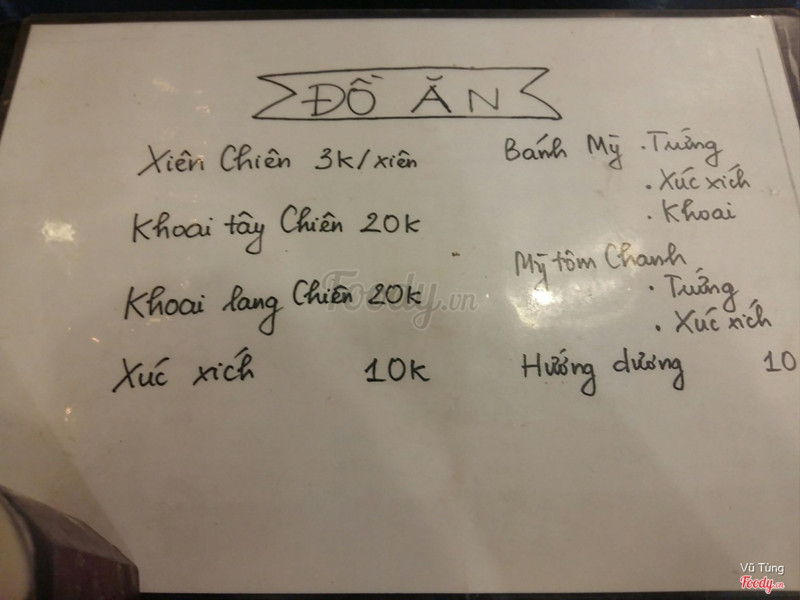 ĐỒ ĂN
Xiên Chiên 3k/xiên
Khoai tây Chiên 20k
Khoai lang Chiên 20k
Xúc xích 10k
Bánh Mỳ . Trứng
. Xúc xích
. Khoai
Mỳ tôm Chanh
. Trứng
. Xúc xích
Hướng dương 10
Foody.vn
Vũ Tùng
Foody.vn